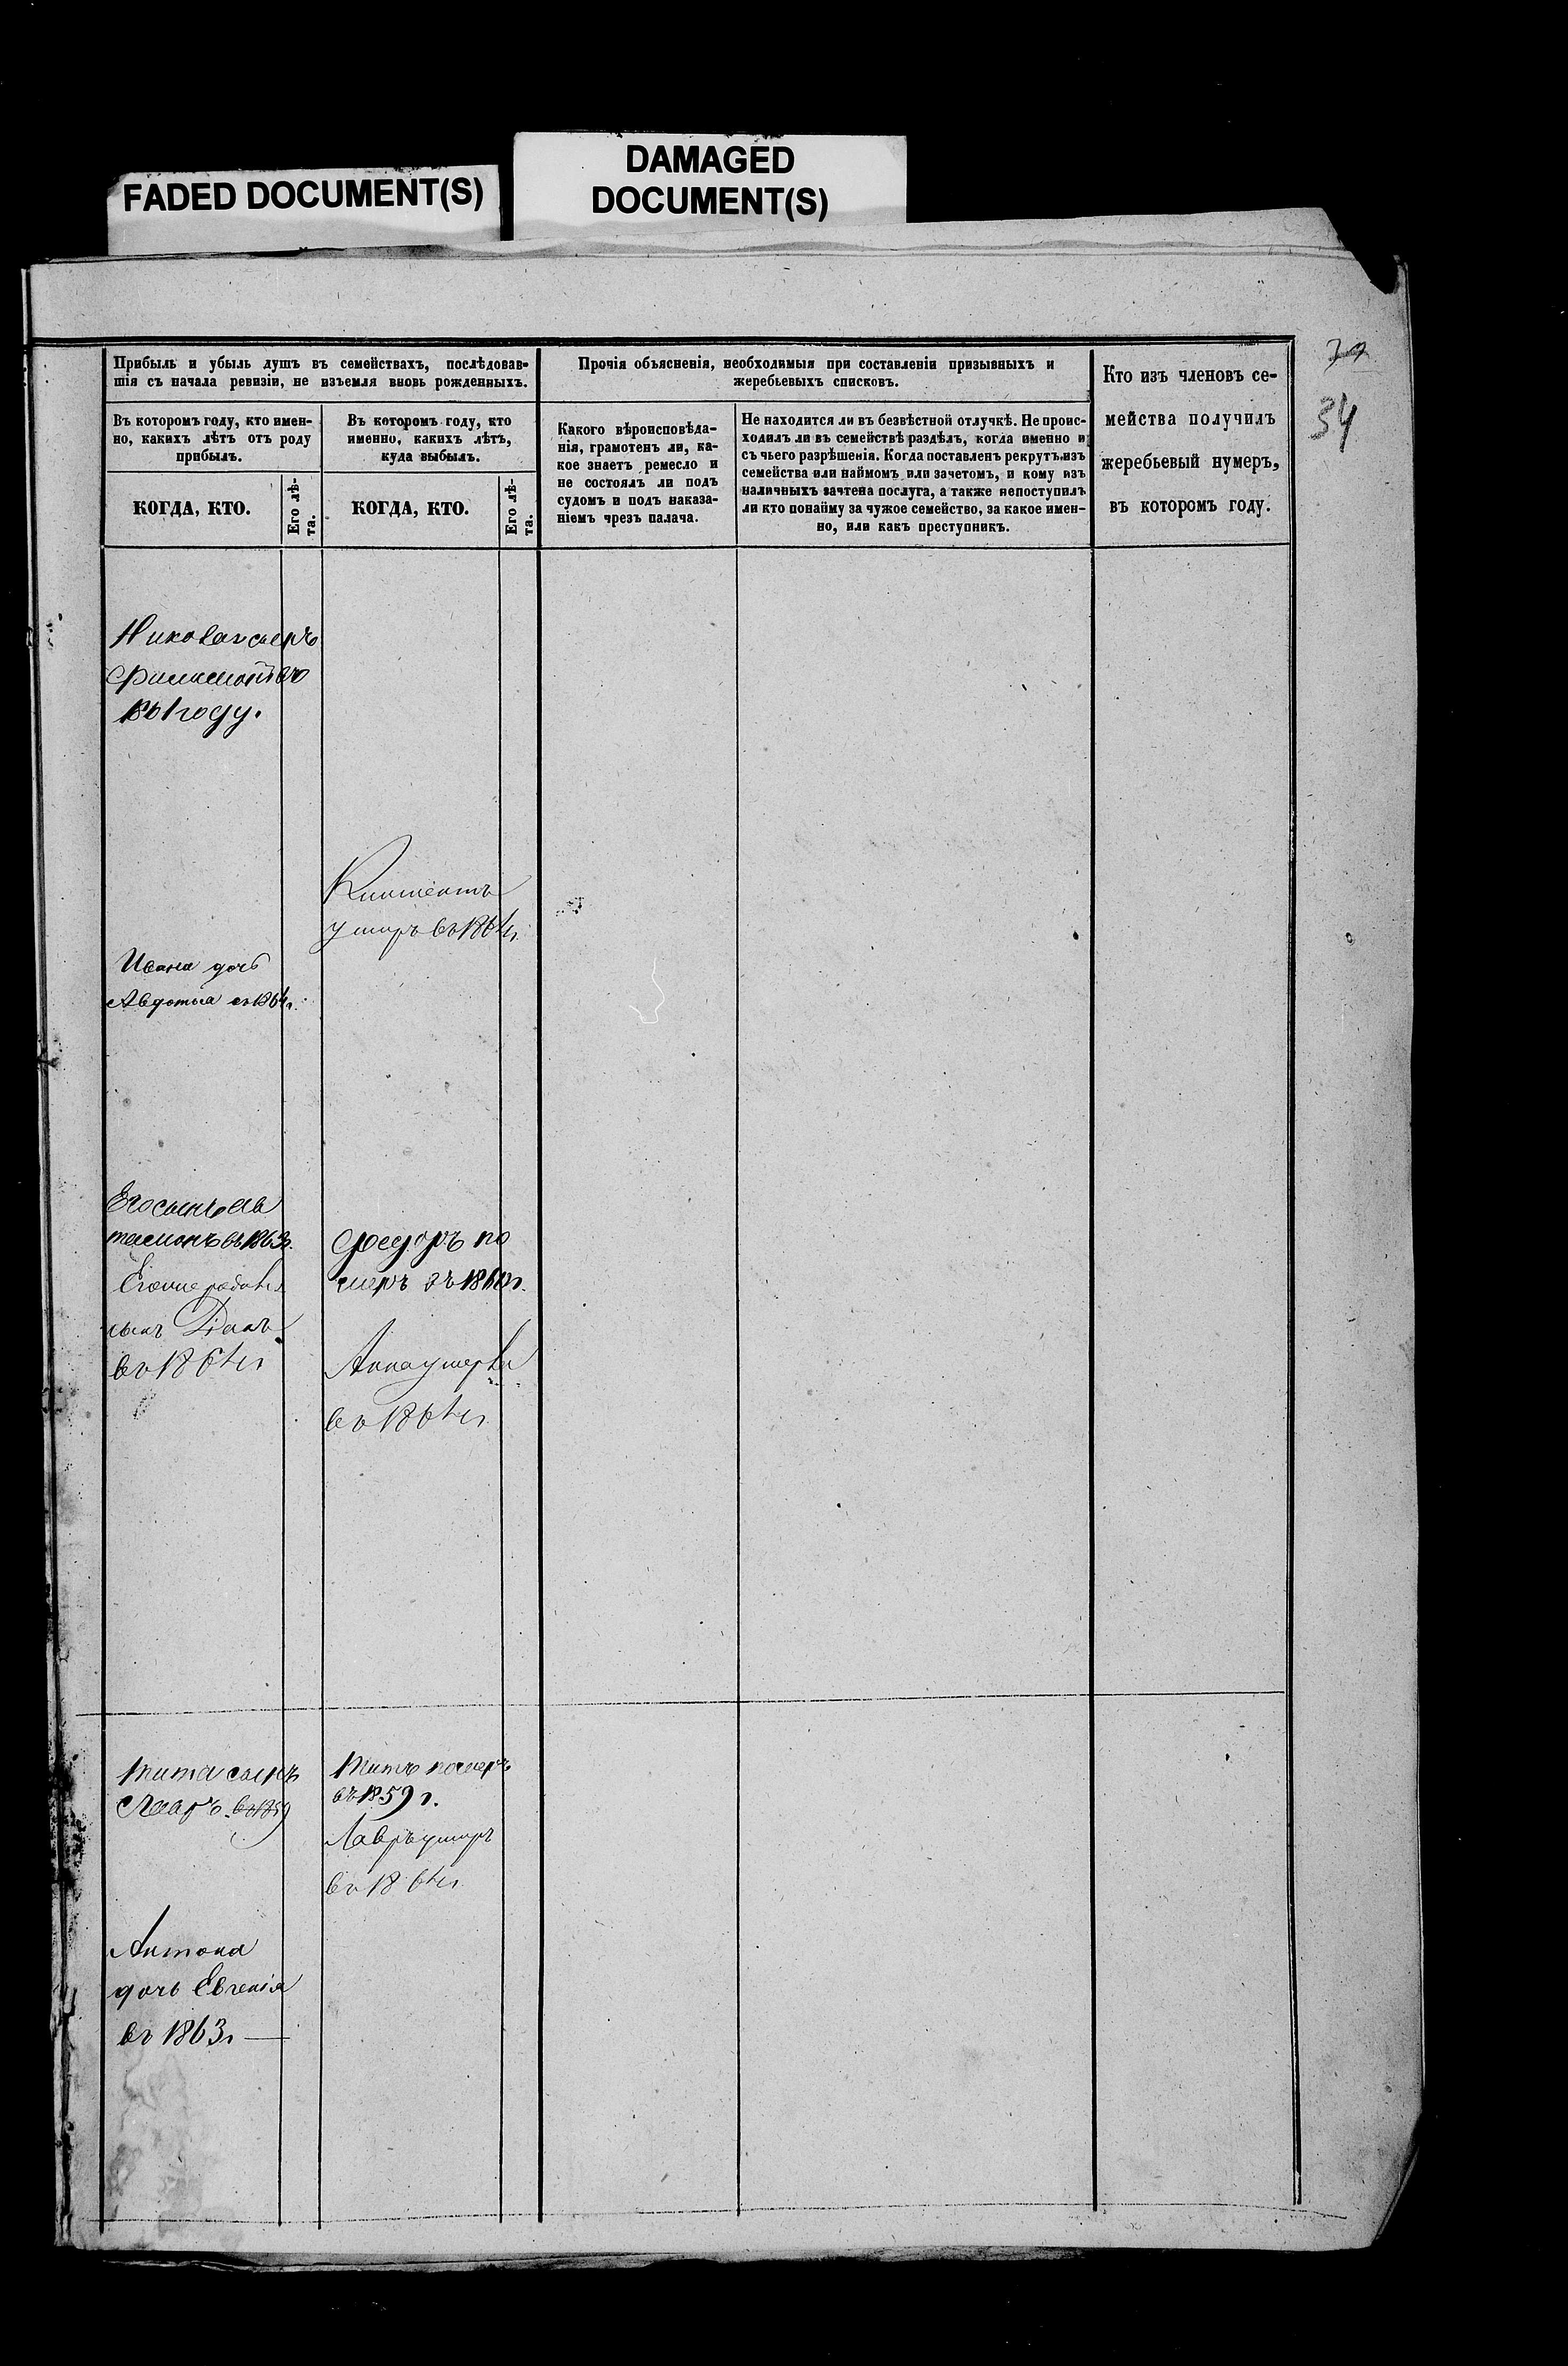 FADED DOCUMENT(S)
DAMAGED
DOCUMENT(S)
34
Прибыль и убыль душъ въ семействахъ, послѣдовав-
шія съ начала ревизіи, не изъемля вновь рожденныхъ.
Прочія объясненія, необходимыя при составленіи призывныхъ и
жеребьевыхъ списковъ.
Кто изъ членовъ се-
мейства получилъ
жеребьевый нумеръ,
въ которомъ году.
Въ которомъ году, кто имен-
но, какихъ лѣтъ отъ роду
прибылъ.
Въ которомъ году, кто
именно, какихъ лѣтъ,
куда выбылъ.
Какого вѣроисповѣда-
нія, грамотенъ ли, ка-
кое знаетъ ремесло и
не состоялъ ли подъ
судомъ и подъ наказа-
ніемъ чрезъ палача.
Не находится ли въ безвѣстной отлучкѣ. Не проис-
ходилъ ли въ семействѣ раздѣлъ, когда именно и
съ чьего разрѣшенія. Когда поставленъ рекрутъ изъ
семейства или наймомъ или зачетомъ, и кому изъ
наличныхъ зачтена послуга, а также непоступилъ
ли кто понайму за чужое семейство, за какое имен-
но, или какъ преступникъ.
КОГДА, КТО.
Его лѣ-
та.
КОГДА, КТО.
Его лѣ-
та.
году.
умеръ въ 1864 г.
Ивана дочь
Авдотья въ 1864 г.
Его сынъ
въ 1863 г.
сынъ
въ 1864 г
Федоръ по
меръ въ 1860 г.
Анна умерла
въ 1864 г
Тита сынъ
Лавръ въ 1859
Титъ померъ
въ 1859 г.
Лавръ умеръ
въ 1864 г
Антона
дочь Евгенія
въ 1863 г